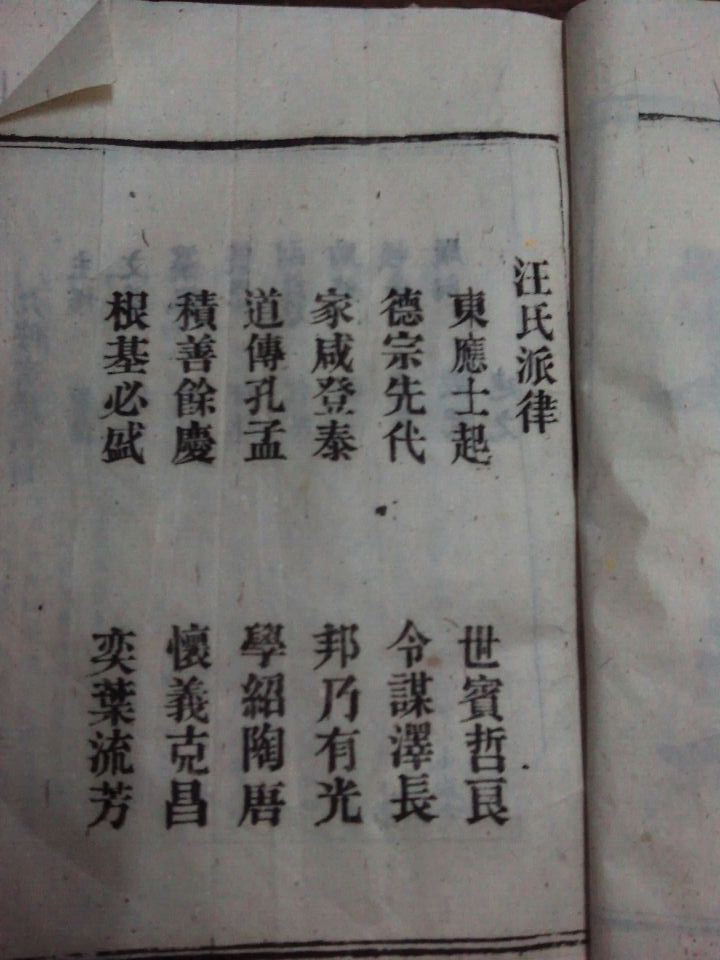 汪氏派律
東應士起 世賓哲良
德宗先代 令謀澤長
家咸登泰 邦乃有光
道傳孔孟 學紹陶唐
積善餘慶 懷義克昌
根基必盛 奕葉流芳